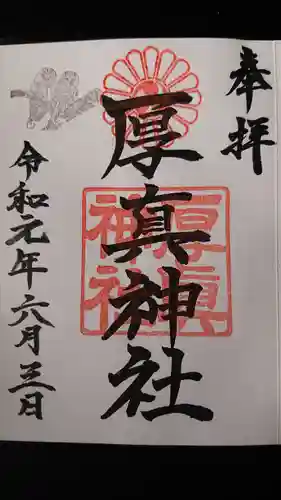 奉拝
厚真神社
厚眞
神社
令和元年六月三日